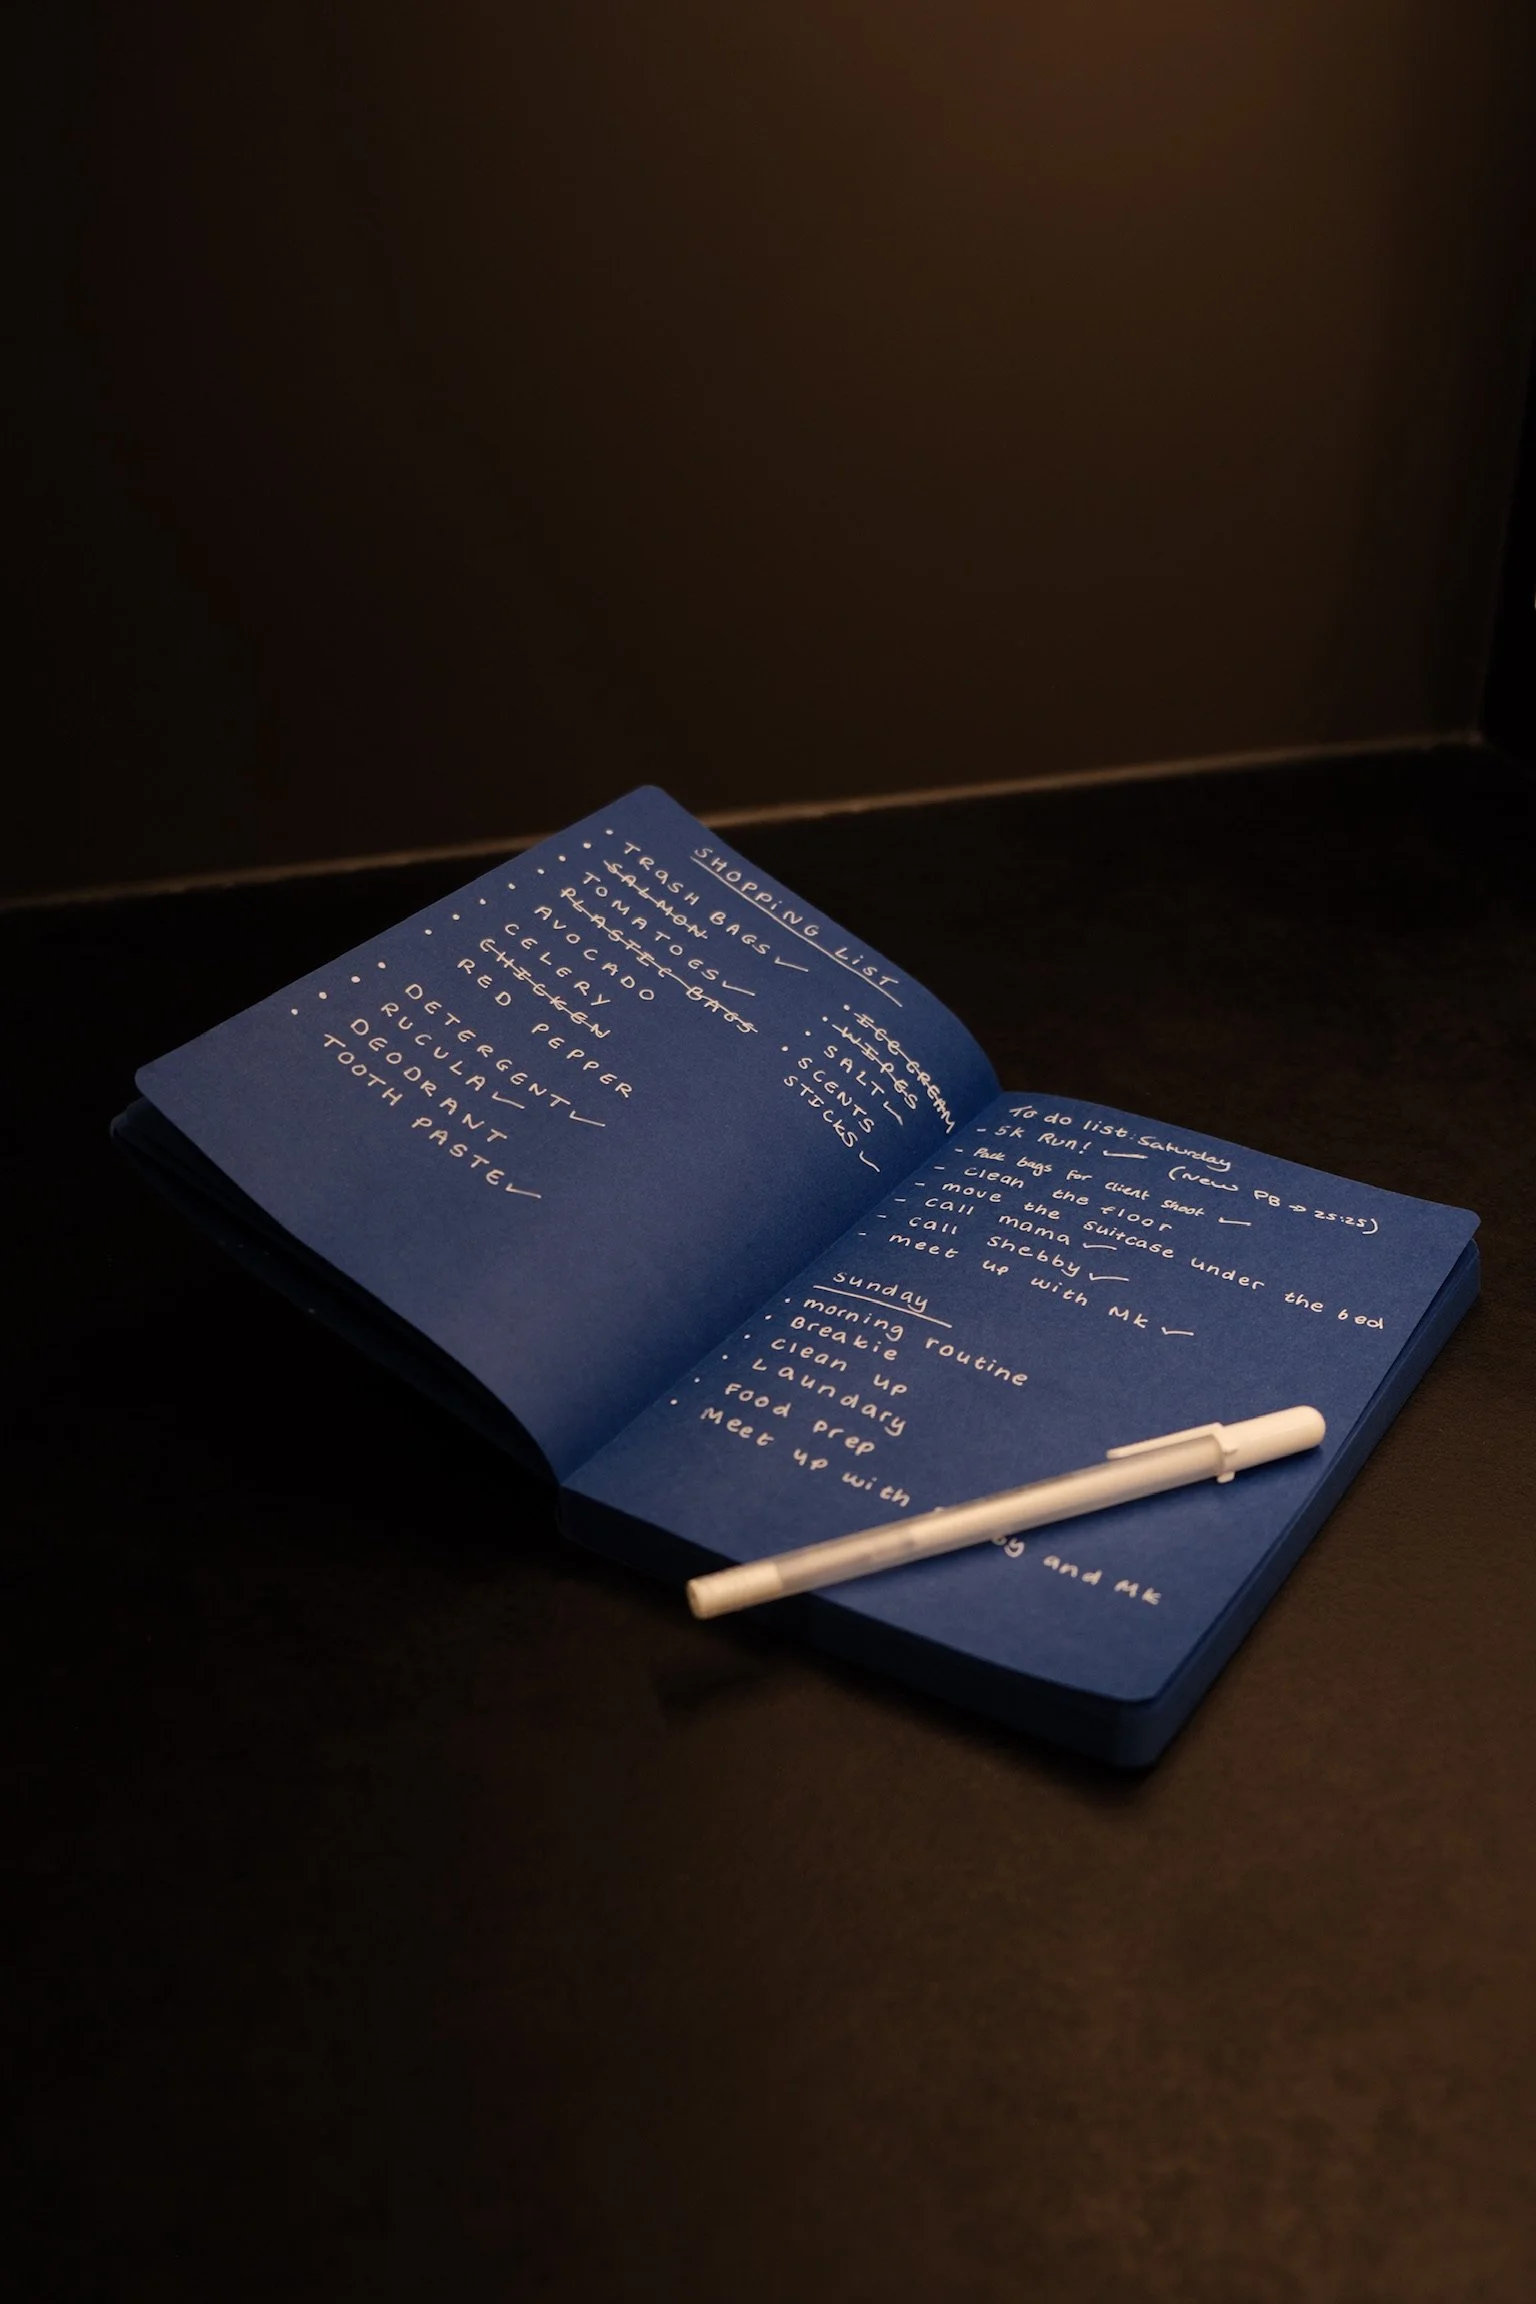 SHOPPING LIST
• TRASH BAGS ✓
• SALMON
• TOMATOES ✓
• PLASTIC BAGS
• AVOCADO
• CELERY
• CHICKEN
• RED PEPPER
• DETERGENT ✓
• RUCULA ✓
• DEODRANT
• TOOTH PASTE ✓
• ICE CREAM
• WIPES
• SALT ✓
• SCENTS
STICKS ✓
To do list: Saturday
- 5K Run! ✓ (New PB → 25:25)
- Pack bags for client shoot ✓
- clean the floor
- move the suitcase under the bed
- call mama ✓
- call shebby ✓
- meet up with MK ✓
Sunday
• morning routine
• Breakie
• Clean up
• Laundary
• Food prep
• Meet up with by and MK